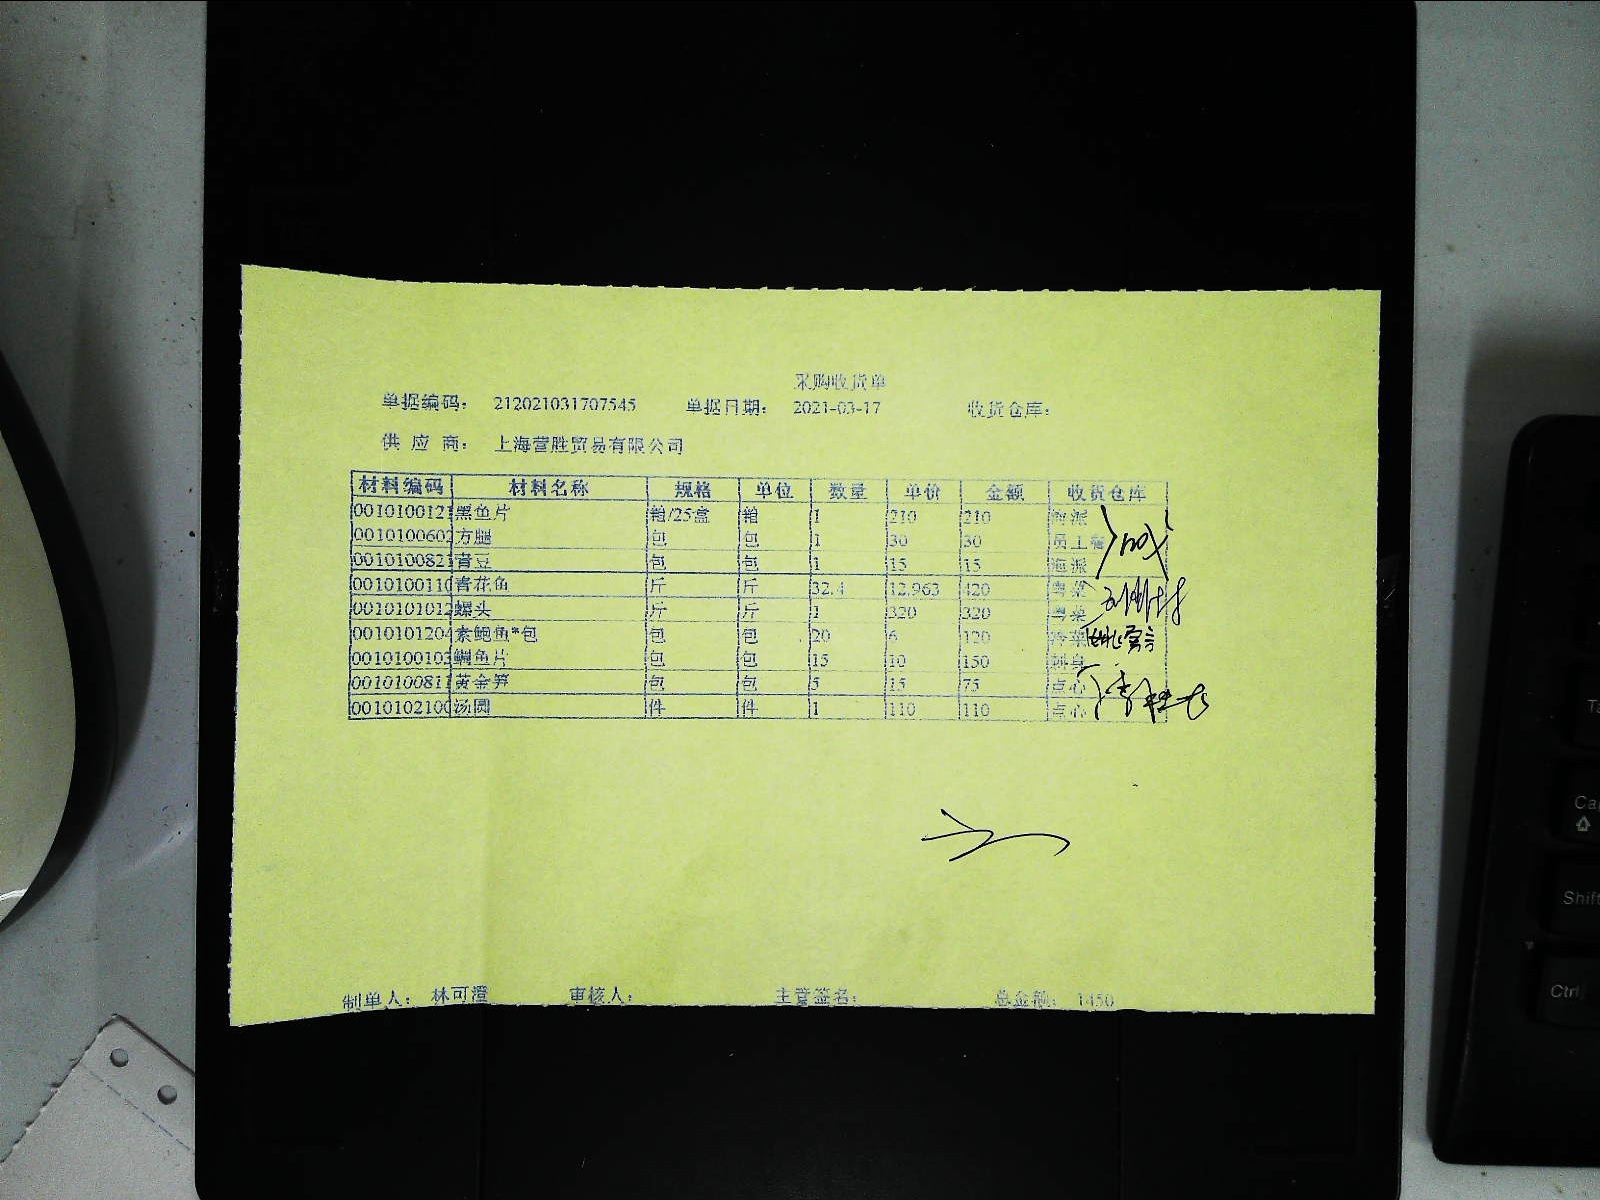 采购收货单
单据编码： 212021031707545 单据日期： 2021-03-17 收货仓库：
供 应 商： 上海营胜贸易有限公司
材料编码 材料名称 规格 单位 数量 单价 金额 收货仓库
0010100121 黑鱼片 箱/25盒 箱 1 210 210 海派
0010100602 方腿 包 包 1 30 30 员工餐
0010100821 青豆 包 包 1 15 15 海派
0010100110 青花鱼 斤 斤 32.4 12.963 420 粤菜
0010101012 螺头 斤 斤 1 320 320 粤菜
0010101204 素鲍鱼*包 包 包 20 6 120 冷菜
0010100103 鲷鱼片 包 包 15 10 150 刺身
0010100811 黄金笋 包 包 5 15 75 点心
0010102100 汤圆 件 件 1 110 110 点心
制单人： 林可澄 审核人： 主管签名： 总金额： 1450
Caps
Shift
Ctrl